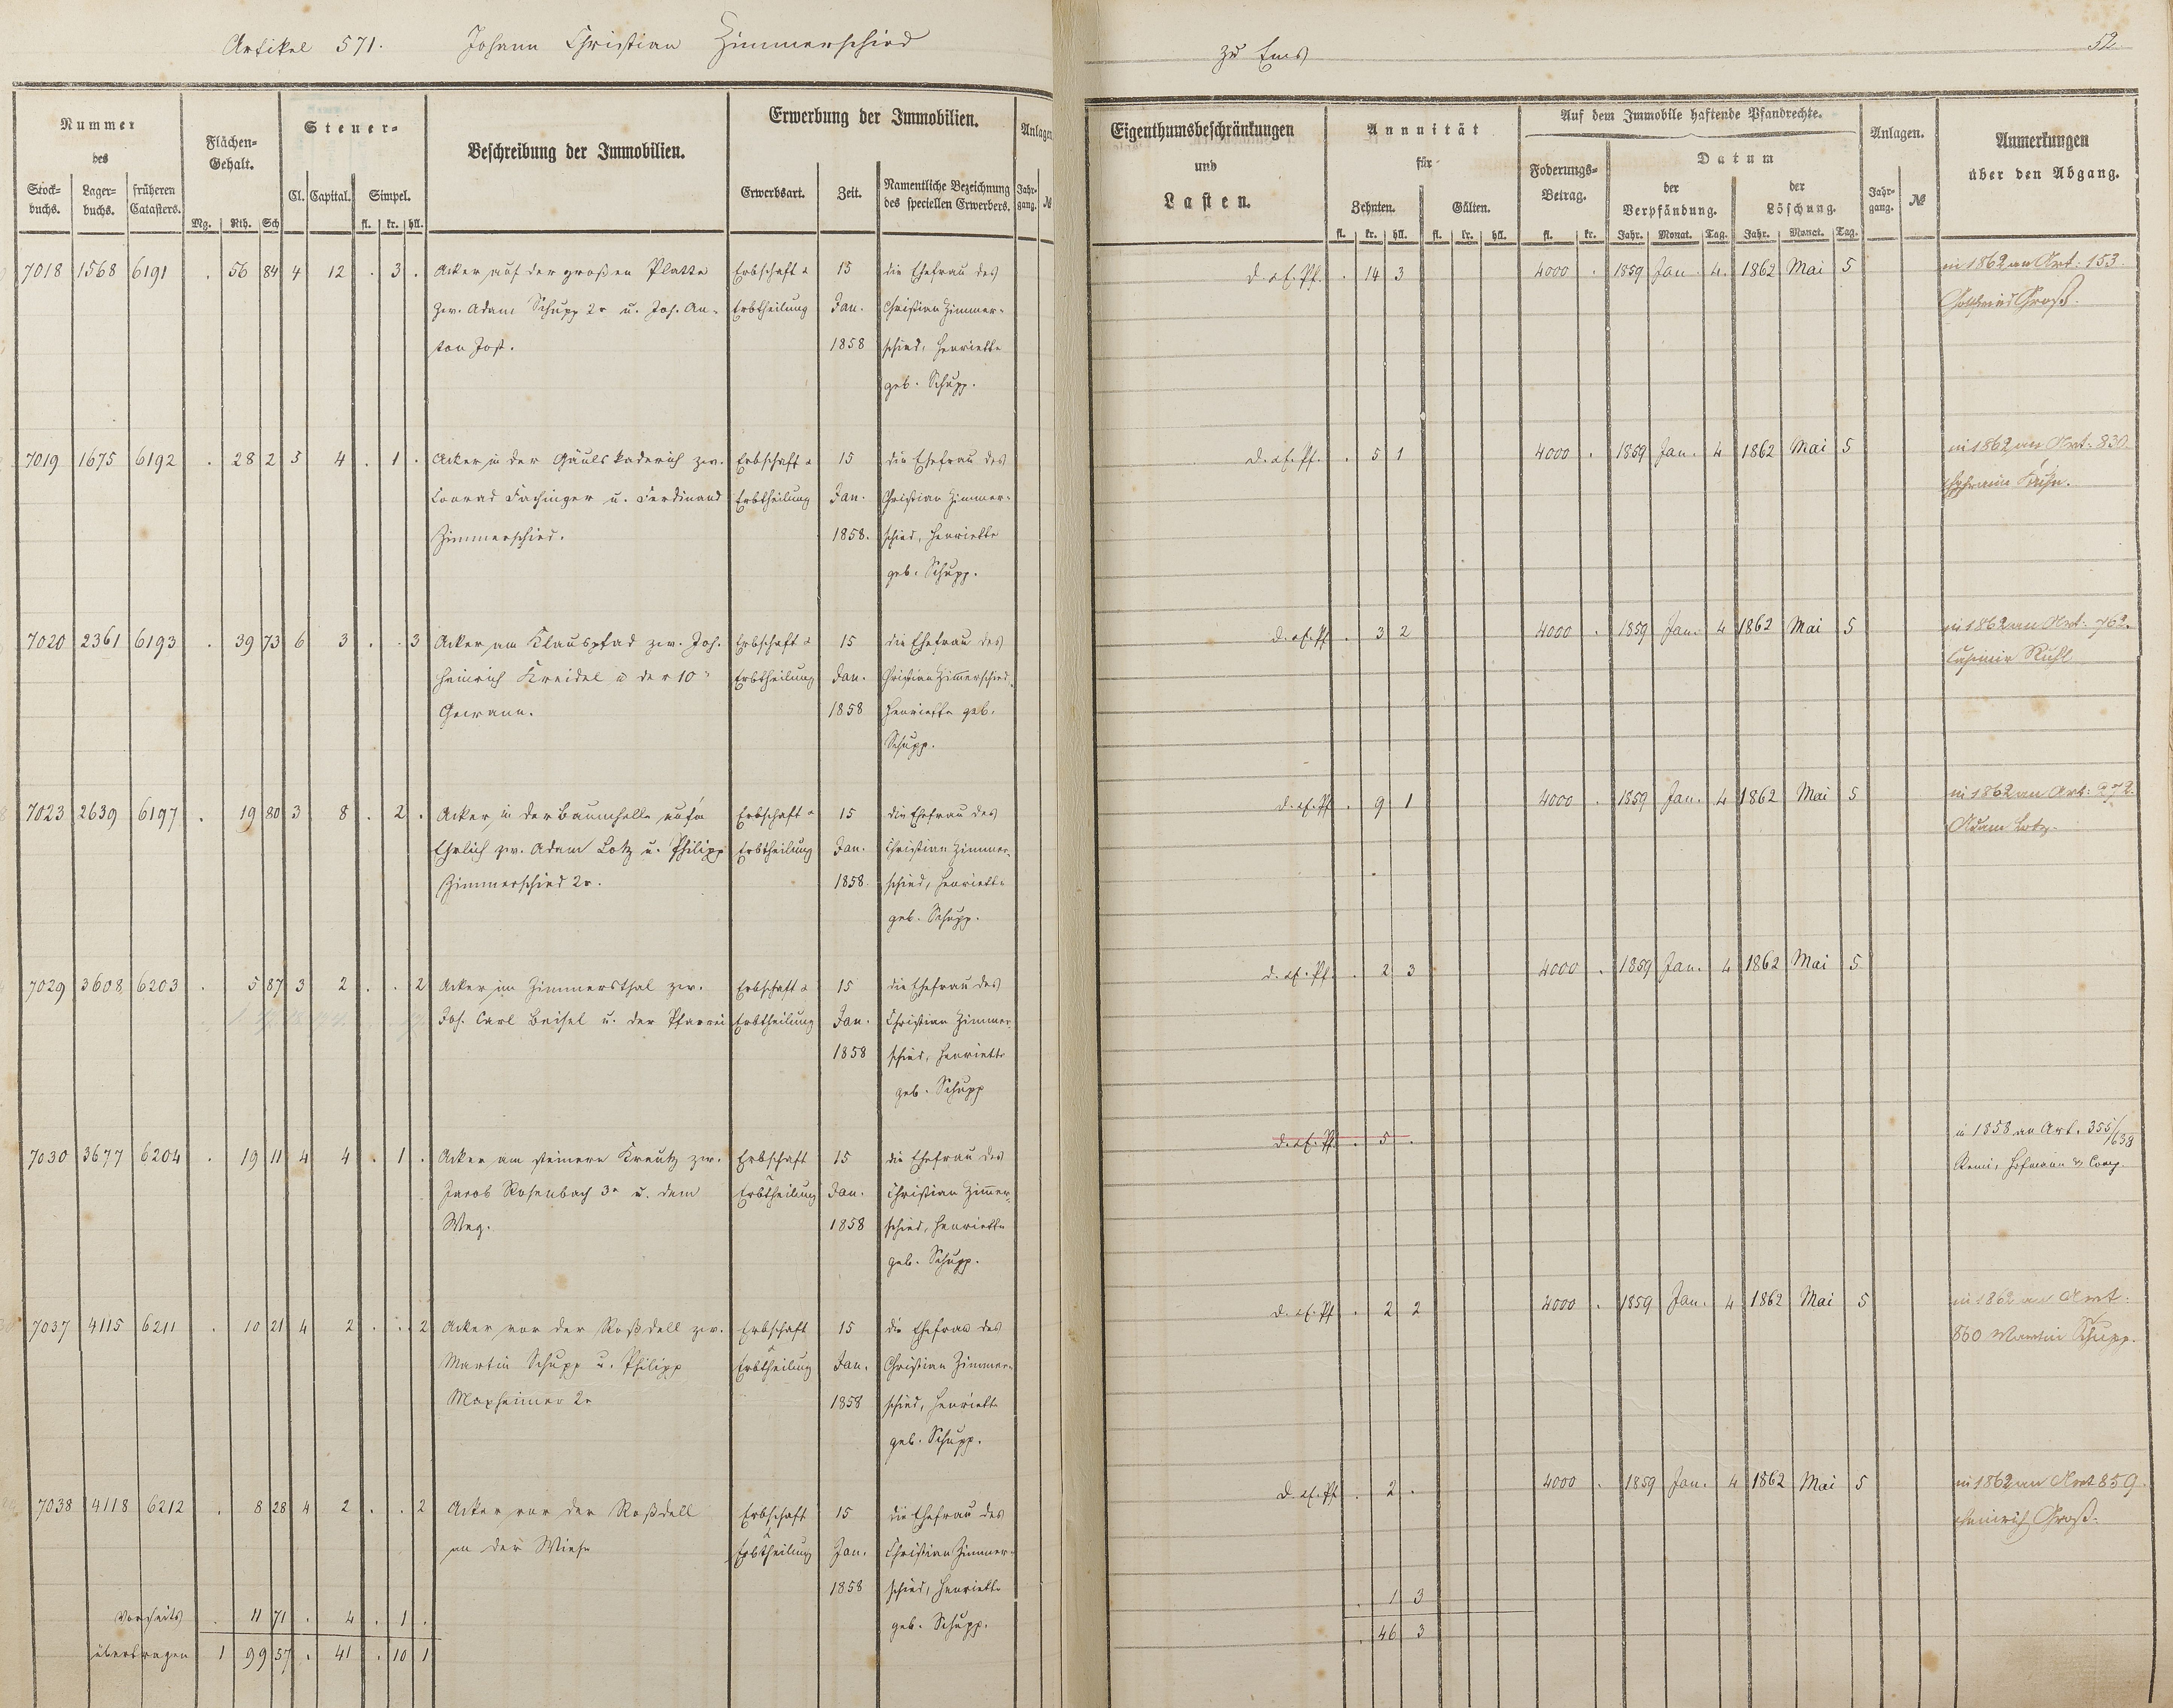 Artikel 571. Johann Christian Zimmerschied zu Ems 52
Nummer des
Stockbuchs. Lagerbuchs. früheren Catasters.
Flächen-Gehalt.
Mg. Rth. Sch
Steuer-
Cl. Capital. Simpel.
fl. kr. hll.
Beschreibung der Immobilien.
Erwerbung der Immobilien.
Erwerbsart. Zeit. Namentliche Bezeichnung des speciellen Erwerbers.
Anlagen
Jahrgang. №
Eigenthumsbeschränkungen und Lasten.
Annuität für
Zehnten. Gülten.
fl. kr. hll. fl. kr. hll.
Auf dem Immobile haftende Pfandrechte.
Foderungs-Betrag.
fl. kr.
Datum
der Verpfändung. der Löschung.
Jahr. Monat. Tag. Jahr. Monat. Tag.
Anlagen.
Jahrgang. №
Anmerkungen über den Abgang.
7018 1568 6191 . 56 84 4 12 . 3 . Acker auf der großen Platte Erbschaft & 15 die Ehefrau des d. ef. Pf. . 14 3 4000 . 1859 Jan. 4. 1862 Mai 5 in 1862 an Art: 153.
zw. Adam Schupp 2r u. Joh. An- Erbtheilung Jan. Christian Zimmer- Gottfried Groß.
ton Jost. 1858 schied, Henriette
geb. Schupp.
7019 1675 6192 . 28 2 3 4 . 1 . Acker in der Gäulskaderich zw. Erbschaft & 15 die Ehefrau des d. ef. Pf. . 5 1 4000 . 1859 Jan. 4 1862 Mai 5 in 1862 an Art: 830.
Conrad Fachinger u. Ferdinand Erbtheilung Jan. Christian Zimmer- Ephraim Kuhn.
Zimmerschied. 1858. schied, Henriette
geb. Schupp.
7020 2361 6193 . 39 73 6 3 . . 3 Acker am Klauspfad zw. Joh. Erbschaft & 15 die Ehefrau des d. ef. Pf . 3 2 4000 . 1859 Jan. 4 1862 Mai 5 in 1862 an Art: 762.
Heinrich Kreidel u der 10r Erbtheilung Jan. Christian Zimerschied, Casimir Ruhl
Gewann. 1858 Henriette geb.
Schupp.
7023 2639 6197 . 19 80 3 8 . 2 . Acker in der Baumhelle aufm Erbschaft & 15 die Ehefrau des d. ef. Pf . 9 1 4000 . 1859 Jan. 4 1862 Mai 5 in 1862 an Art: 272.
Ehrlich zw. Adam Lotz u. Philipp Erbtheilung Jan. Christian Zimmer- Adam Lotz.
Zimmerschied 2r. 1858. schied, Henriette
geb. Schupp.
7029 3608 6203 . 5 87 3 2 . . 2 Acker im Zimmersthal zw. Erbschaft & 15 die Ehefrau des d. ef. Pf. . 2 3 4000 . 1859 Jan. 4 1862 Mai 5
Joh. Carl Beisel u. der Pfarrei Erbtheilung Jan. Christian Zimmer-
1858 schied, Henriette
geb. Schupp
7030 3677 6204 . 19 11 4 4 . 1 . Acker am steinern Kreutz zw. Erbschaft 15 die Ehefrau des d. ef. Pf. . 5 . in 1858 an Art. 355/638
Jacob Rosenbach 3r u. dem Erbtheilung Jan. Christian Zimer- Remi, Hofmann & Comp.
Weg. 1858 schied, Henriette
geb. Schupp.
7037 4115 6211 . 10 21 4 2 . . 2 Acker vor der Roßdell zw. Erbschaft 15 die Ehefrau des d. ef. Pf . 2 2 4000 . 1859 Jan. 4 1862 Mai 5 in 1862 an Art:
Martin Schupp u. Philipp Erbtheilung Jan. Christian Zimmer- 860 Martin Schupp.
Maxheimer 2r 1858 schied, Henriette
geb. Schupp.
7038 4118 6212 . 8 28 4 2 . . 2 Acker vor der Roßdell Erbschaft 15 die Ehefrau des d. ef. Pf . 2 . 4000 . 1859 Jan. 4 1862 Mai 5 in 1862 an Art 859.
an der Wiese Erbtheilung Jan. Christian Zimmer- Heinrich Groß.
1858 schied, Henriette
geb. Schupp.
Vorseits . 11 71 . 4 . 1 . . 1 3
übertragen 1 99 57 . 41 . 10 1 . 46 3